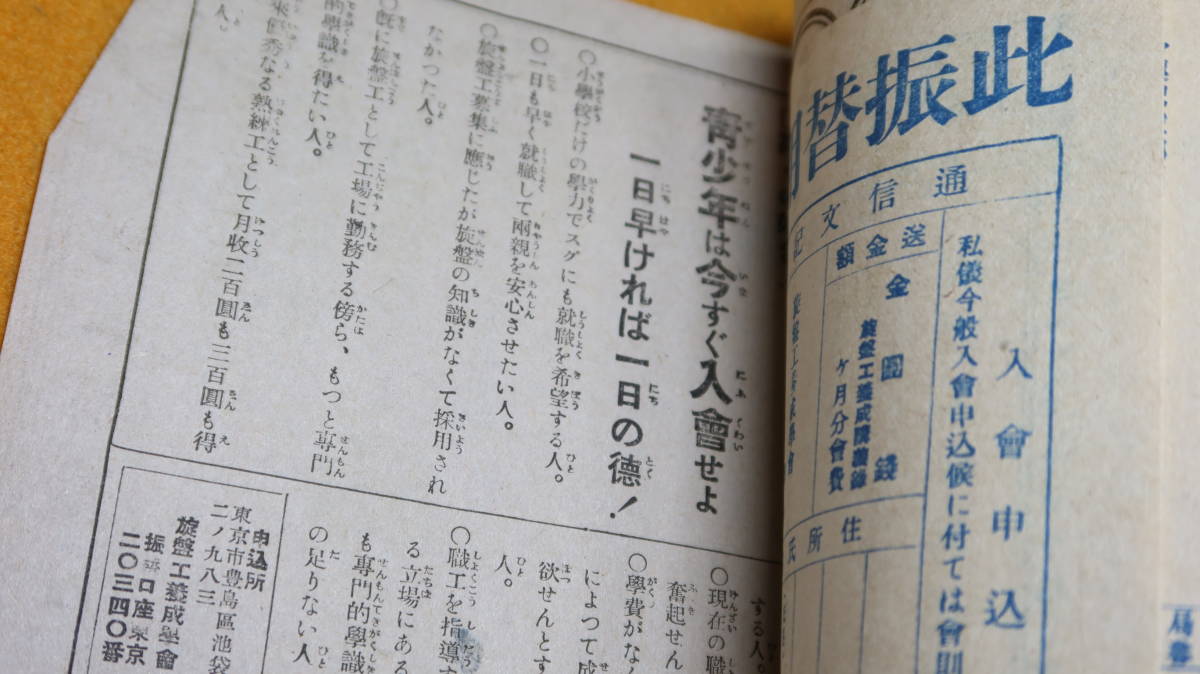 此振替
通信文記
入會申込
私儀今般入會申込候に付ては會則
送金額
金 圓 錢
ヶ月分會費
住所氏
青少年は今すぐ入會せよ
一日早ければ一日の德！
○小學校だけの學力でスグにも就職を希望する人。
○一日も早く就職して兩親を安心させたい人。
○旋盤工募集に應じたが旋盤の知識がなくて採用され
なかつた人。
○既に旋盤工として工場に勤務する傍ら、もつと專門
的學識を得たい人。
來優秀なる熟練工として月收二百圓も三百圓も得
人。
する人。
○現在の職
奮起せん
○學費がな
によつて成
欲せんとす
人。
○職工を指導す
る立場にある
も專門的學識
の足りない人
申込所
東京市豊島區池袋
二ノ九八三
旋盤工養成學會
振替口座東京
二〇三四〇番